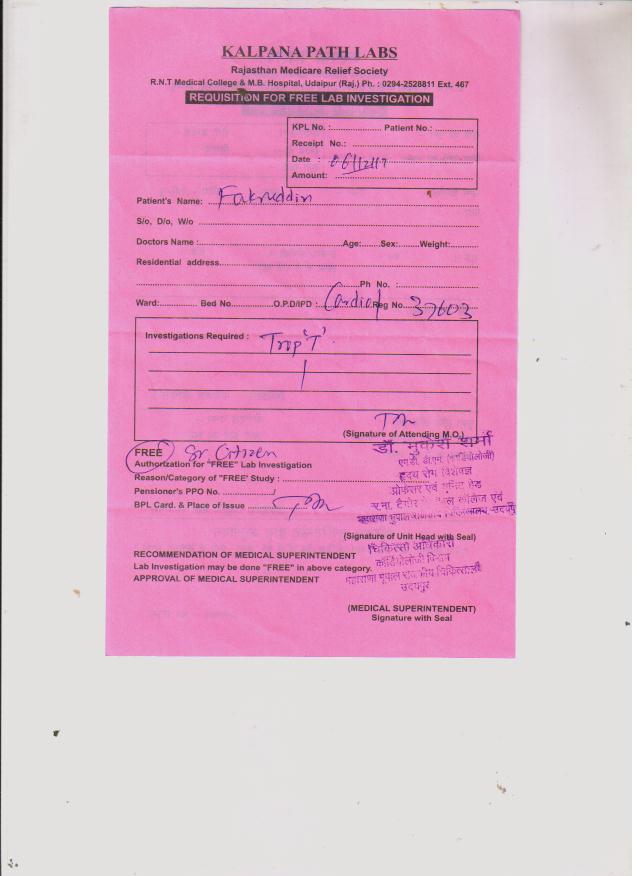 KALPANA PATH LABS
Rajasthan Medicare Relief Society
R.N.T Medical College & M.B. Hospital, Udaipur (Raj.) Ph. : 0294-2528811 Ext. 467
REQUISITION FOR FREE LAB INVESTIGATION
KPL No. :.................. Patient No.:..............
Receipt No.: ................................
Date : 06/12/17
Amount: ................................
Patient's Name: Fakruddin
S/o, D/o, W/o ................................
Doctors Name :................Age:.......Sex:.......Weight:..........
Residential address................................
................................Ph No. :........................
Ward:............. Bed No...............O.P.D/IPD :. Cardio Reg No. 37603
Investigations Required : Trop 'T'
(Signature of Attending M.O.)
डॉ. मुकेश शर्मा
FREE Sr. Citizen
एम.डी. डी.एम. (कार्डियोलॉजी)
Authorization for "FREE" Lab Investigation
हृदय रोग विशेषज्ञ
Reason/Category of "FREE' Study : ................
प्रोफेसर एवं यूनिट हेड
Pensioner's PPO No. ................/
र.ना. टैगोर कॉलेज एवं
BPL Card. & Place of Issue ................
महाराणा भूपाल राजकीय चिकित्सालय-उदयपुर
(Signature of Unit Head with Seal)
चिकित्सा अधिकारी
RECOMMENDATION OF MEDICAL SUPERINTENDENT
कॉर्डियोलॉजी विभाग
Lab Investigation may be done "FREE" in above category.
APPROVAL OF MEDICAL SUPERINTENDENT
महाराणा भूपाल राजकीय चिकित्सालय
उदयपुर
(MEDICAL SUPERINTENDENT)
Signature with Seal